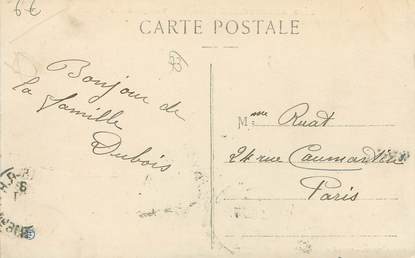 6€
CARTE POSTALE
Bonjour de
la famille
Dubois
Mme Ruat
24 rue Caumartin
Paris